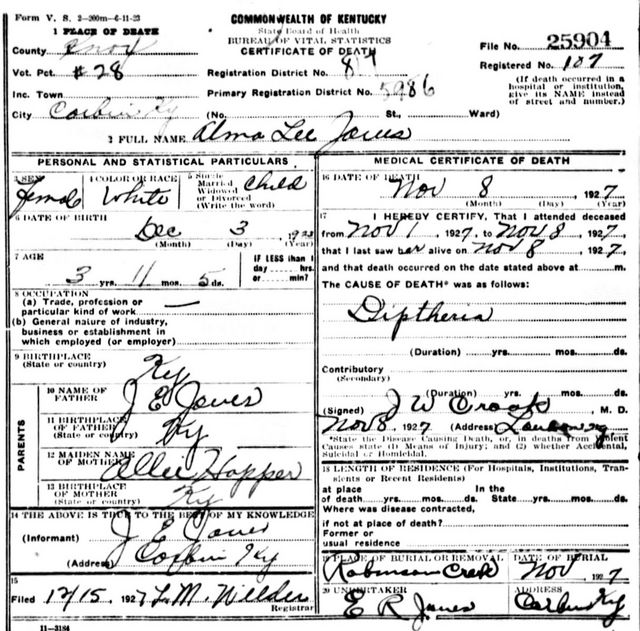 Form V. S. 2-200m-6-11-23
COMMONWEALTH OF KENTUCKY
State Board of Health
BUREAU OF VITAL STATISTICS
CERTIFICATE OF DEATH
1 PLACE OF DEATH
County Knox
Vot. Pct. #28
Inc. Town
City Corbin Ky
Registration District No. 817
Primary Registration District No. 5986
(No. St., Ward)
File No. 25904
Registered No. 107
(If death occurred in a
hospital or institution,
give its NAME instead
of street and number.)
2 FULL NAME Alma Lee Jones
PERSONAL AND STATISTICAL PARTICULARS
3 SEX Female
4 COLOR OR RACE White
5 Single
Married
Widowed
or Divorced
(Write the word) Child
6 DATE OF BIRTH
Dec 3 1923
(Month) (Day) (Year)
7 AGE
3 yrs. 11 mos. 5 ds.
IF LESS than 1
day hrs.
or min?
8 OCCUPATION
(a) Trade, profession or
particular kind of work —
(b) General nature of industry,
business or establishment in
which employed (or employer)
9 BIRTHPLACE
(State or country) Ky
PARENTS
10 NAME OF
FATHER J E Jones
11 BIRTHPLACE
OF FATHER
(State or country) Ky
12 MAIDEN NAME
OF MOTHER Hopper
13 BIRTHPLACE
OF MOTHER
(State or country) Ky
14 THE ABOVE IS TRUE TO THE BEST OF MY KNOWLEDGE
(Informant) J E Jones
(Address) Corbin Ky
15
Filed 12/15 1927 L. M. Wilder
Registrar
11-3184
MEDICAL CERTIFICATE OF DEATH
16 DATE OF DEATH
Nov 8 1927
(Month) (Day) (Year)
17 I HEREBY CERTIFY, That I attended deceased
from Nov 1 1927, to Nov 8, 1927
that I last saw her alive on Nov 8, 1927,
and that death occurred on the date stated above at m.
The CAUSE OF DEATH* was as follows:
Diptheria
(Duration) yrs. mos. ds.
Contributory
(Secondary)
(Duration) yrs. mos. ds.
(Signed) J W Crook, M. D.
Nov 8, 1927 (Address)
*State the Disease Causing Death, or, in deaths from Violent
Causes state (1) Means of Injury; and (2) whether Accidental,
Suicidal or Homicidal.
18 LENGTH OF RESIDENCE (For Hospitals, Institutions, Tran-
sients or Recent Residents)
at place In the
of death yrs. mos. ds. State yrs. mos. ds.
Where was disease contracted,
if not at place of death?
Former or
usual residence
19 PLACE OF BURIAL OR REMOVAL
Robinson Creek
DATE OF BURIAL
Nov 1927
20 UNDERTAKER
E R Jones
ADDRESS
Corbin Ky